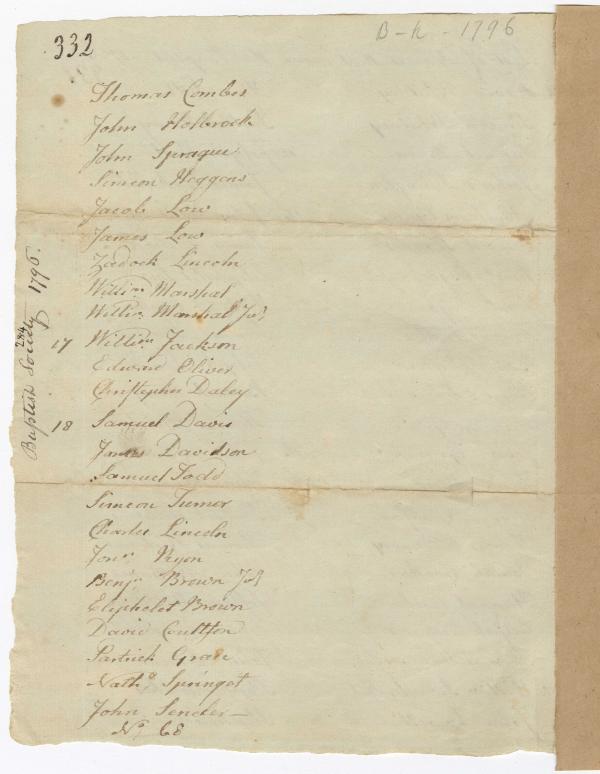 332
B-k - 1796
Thomas Combes
John Holbrock
John Sprague
Simeon Heggens
Jacob Low
James Low
Zadock Lincoln
Willm. Marshal
Willm. Marshal Jur
17 Willim. Jackson
Edward Oliver
Christepher Daley
18 Samuel Davis
James Davidson
Samuel Todd
Simeon Turner
Charles Lincoln
Jonn. Kyon
Benjn. Brown Jur
Eliphelet Brown
David Coultton
Partrick Grace
Nathl. Springet
John Sencler
No. 68
Baptish Society 1796.
284